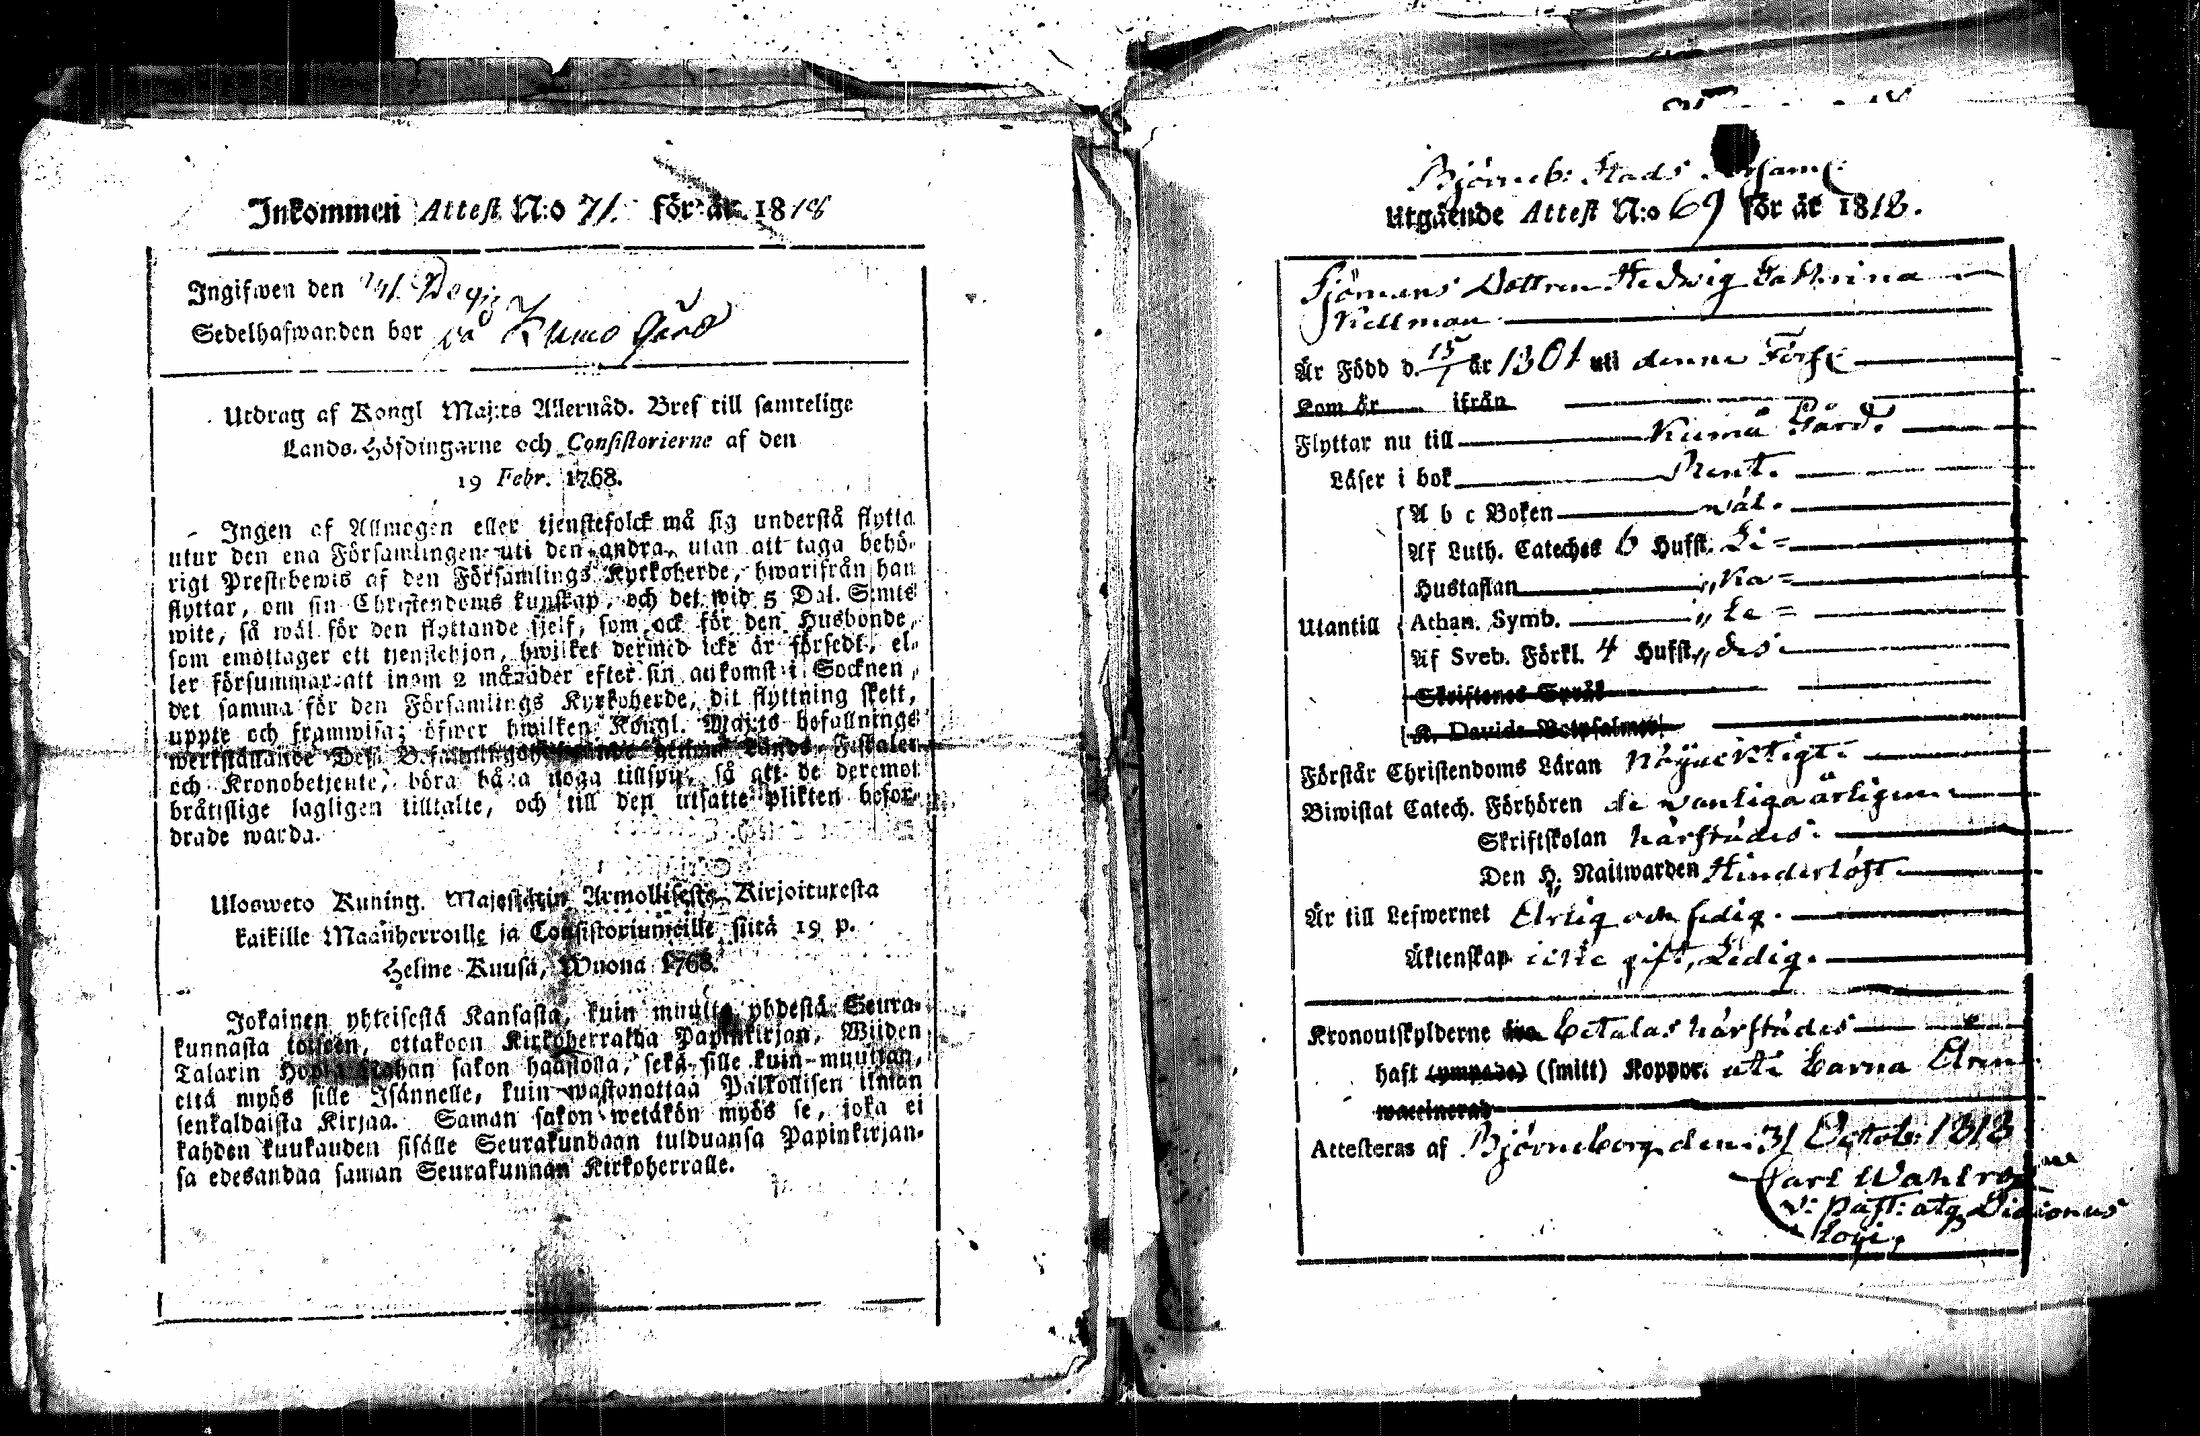 Inkommen Attest N:o 71. för år 1818
Ingifwen den
Sedelhafwanden bor på Kumo Gård
Utdrag af Kongl Maj:ts Allernåd. Bref till samtelige
Lands-Höfdingarne och Consistorierne af den
19 Febr. 1768.
Ingen af Allmogen eller tjenstefolck må sig understå flytta
utur den ena Församlingen uti den andra, utan att taga behö-
rigt Prestebewis af den Församlings Kyrkoherde, hwarifrån han
flyttar, om sin Christendoms kunskap, och det wid 5 Dal. S:mts
wite, så wäl för den flyttande sjelf, som ock för den Husbonde,
som emottager ett tjenstehjon, hwilket dermed icke är försedt, el-
ler försummar att inom 2 månader efter sin ankomst i Socknen,
det samma för den Församlings Kyrkoherde, dit flyttning skett,
uppte och framwisa; öfwer hwilken Kongl. Maj:ts befallnings
werkställande Dess Lands-Fiskaler
och Kronobetjente, böra hafwa noga tillsyn, så att de deremot
bråttslige lagligen tilltalte, och till den utsatte plikten befor-
drade warda.
Ulosweto Kuning. Majestätin Armollisesta Kirjoituxesta
kaikille Maanherroille ja Consistoriumeille, siitä 19 p.
Helme Kuusa, Wuona 1768.
Jokainen yhteisestä Kansasta, kuin muutta yhdestä Seura-
kunnasta toiseen, ottakoon Kirkoherralda Papinkirjan, Wiiden
Talarin Hopia Rahan sakon haastolla, sekä sille kuin muuttan,
että myös sille Isännelle, kuin wastanottaa Palkollisen ilman
senkaldaista Kirjaa. Saman sakon wetäkön myös se, joka ei
kahden kuukauden sisälle Seurakundaan tulduansa Papinkirjan-
sa edesandaa saman Seurakunnan Kirkoherralle.
Björneb: Stads Församl:
Utgående Attest N:o 69 för år 1818.
Sjömans Dottren Hedvig Cathrina
Kellman
Är Född d. 15/1 år 1801 uti denne Förs:
Kom år ifrån
Flyttar nu till Kumå Gård.
Läser i bok Rent.
A b c Boken wäl.
Af Luth. Cateches 6 Hufst. Li=
Hustaflan „ka=
Utantill Athan. Symb. „Le=
Af Sveb. Förkl. 4 Hufst. „des
Skriftenes Språk
K. Davids Botpsalmer
Förstår Christendoms Läran nöjacktigt
Biwistat Catech. Förhören de wanliga årligen
Skriftskolan härstädes
Den H. Nattwarden Hinderlöst
Är till Lefwernet Ärlig och sedig.
Äktenskap icke gift, Ledig.
Kronoutskylderne betalas härstädes
haft (smitt) Koppor. uti barna Åren
waccinerad
Attesteras af Björneborg den 31 Octob: 1818
Carl Wahlroos
V: Past: atq Diaconus
Loci.